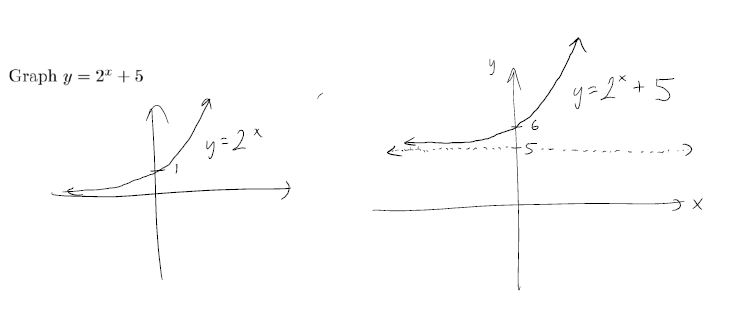 Graph y = 2ˣ + 5
y = 2ˣ
1
y
y = 2ˣ + 5
6
5
x